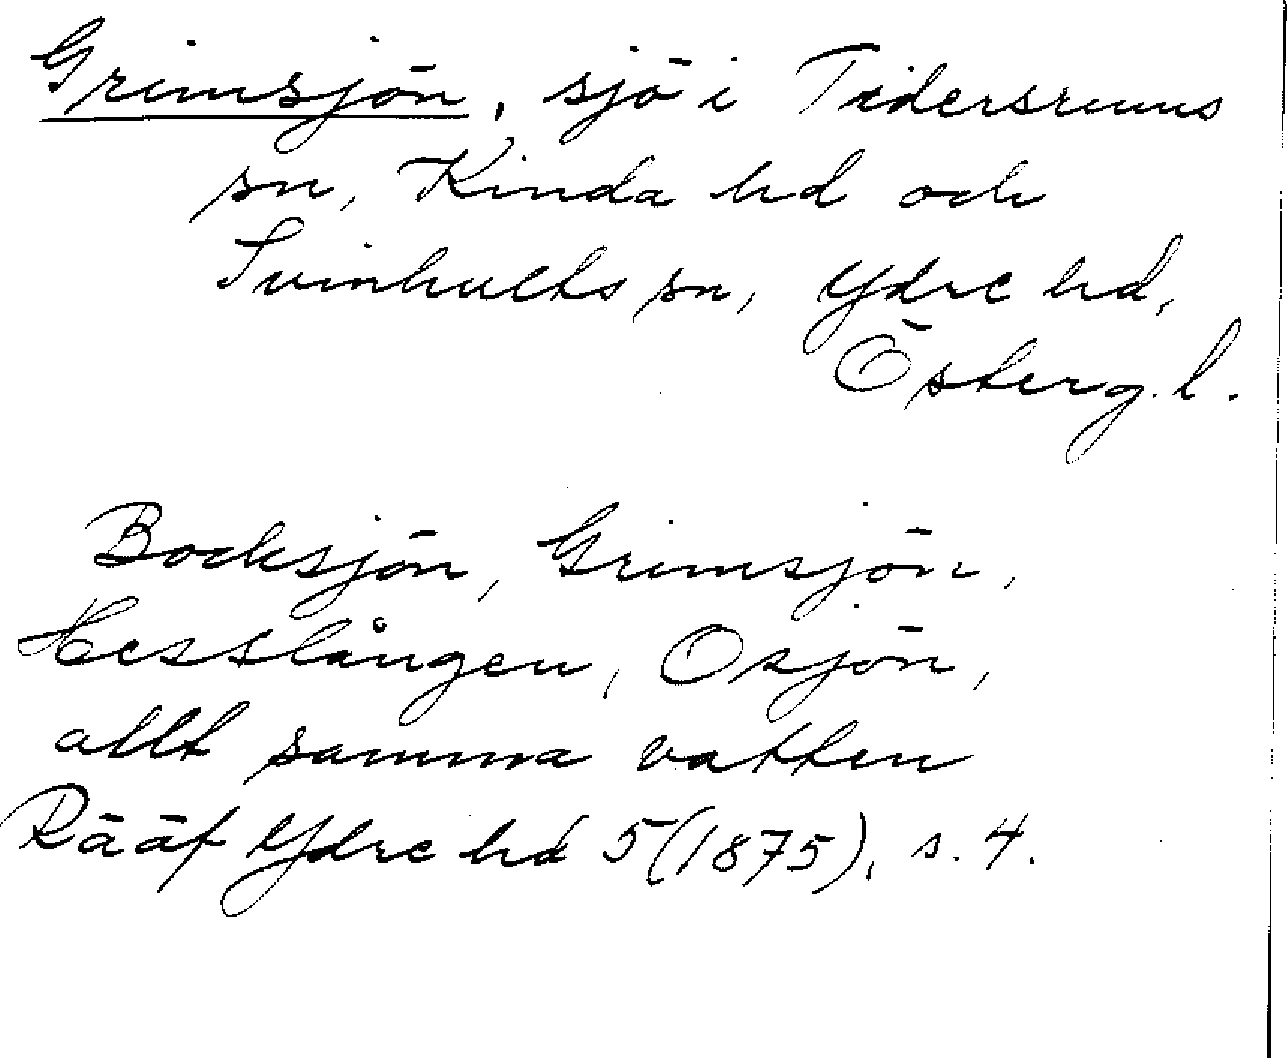 Grimsjön, sjö i Tidersrums
sn, Kinda hd och
Svinhults sn, Ydre hd,
Österg.l.
Bocksjön, Grimsjön,
Hesslången, Osjön,
allt samma vatten
Rääf Ydre hd 5(1875), s. 4.